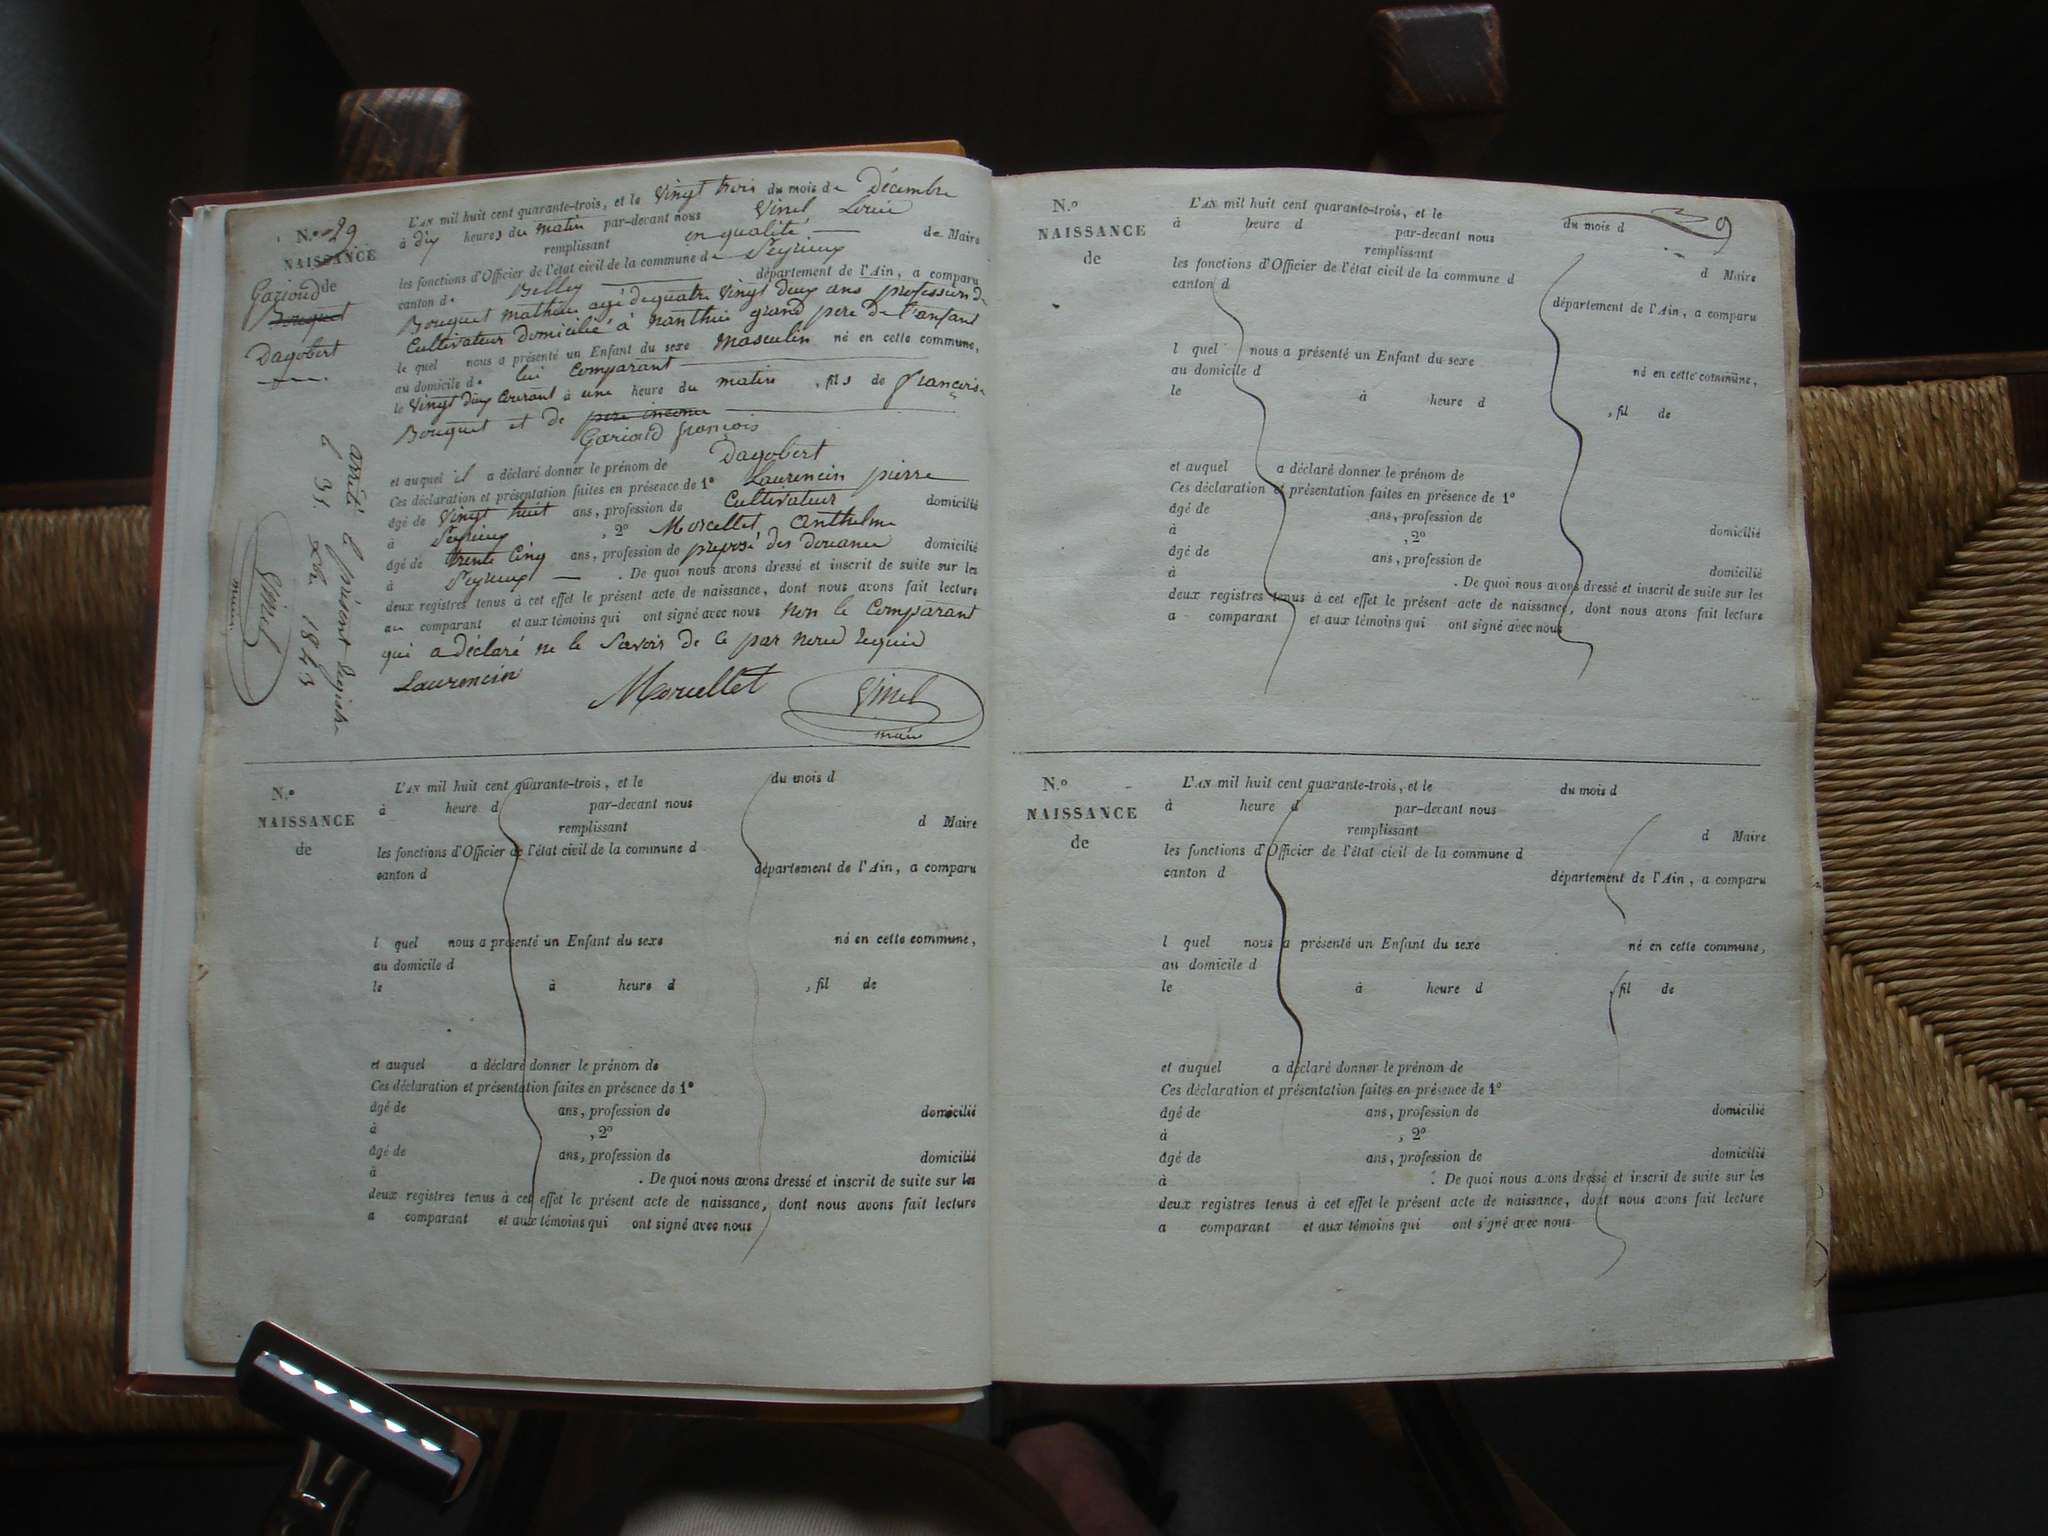 N.º 29
NAISSANCE
de
Garioud
Bouquet
Dagobert
L'AN mil huit cent quarante-trois, et le vingt trois du mois de Décembre
à dix heures du matin par-devant nous Vinel
remplissant en qualité de Maire
les fonctions d'Officier de l'état civil de la commune de Peyrieux
canton de Belley département de l'Ain, a comparu
Bouquet mathieu agé de quatre vingt deux ans profession de
Cultivateur domicilié à nanthui grand pere de l'enfant
le quel nous a présenté un Enfant du sexe masculin né en cette commune,
au domicile de lui comparant
le vingt deux courant à une heure du matin, fils de françoise
Bouquet et de pere inconnu
Garioud françois
et auquel il a déclaré donner le prénom de Dagobert
Ces déclaration et présentation faites en présence de 1º Laurencin pierre
âgé de vingt huit ans, profession de Cultivateur domicilié
à Peyrieux, 2º Morcellet anthelme
âgé de trente cinq ans, profession de preposé des douanes domicilié
à Peyrieux. De quoi nous avons dressé et inscrit de suite sur les
deux registres tenus à cet effet le présent acte de naissance, dont nous avons fait lecture
au comparant et aux témoins qui ont signé avec nous non le comparant
qui a déclaré ne le savoir de ce par nous requis
Laurencin Morcellet Vinel
maire
arrêté le présent registre
le 31 1843
Vinel
maire
N.º
NAISSANCE
de
L'AN mil huit cent quarante-trois, et le du mois d
à heure d par-devant nous
remplissant d Maire
les fonctions d'Officier de l'état civil de la commune d
canton d département de l'Ain, a comparu
l quel nous a présenté un Enfant du sexe né en cette commune,
au domicile d
le à heure d , fil de
et auquel a déclaré donner le prénom de
Ces déclaration et présentation faites en présence de 1º
âgé de ans, profession de domicilié
à , 2º
âgé de ans, profession de domicilié
à . De quoi nous avons dressé et inscrit de suite sur les
deux registres tenus à cet effet le présent acte de naissance, dont nous avons fait lecture
a comparant et aux témoins qui ont signé avec nous
9
N.º
NAISSANCE
de
L'AN mil huit cent quarante-trois, et le du mois d
à heure d par-devant nous
remplissant d Maire
les fonctions d'Officier de l'état civil de la commune d
canton d département de l'Ain, a comparu
l quel nous a présenté un Enfant du sexe né en cette commune,
au domicile d
le à heure d , fil de
et auquel a déclaré donner le prénom de
Ces déclaration et présentation faites en présence de 1º
âgé de ans, profession de domicilié
à , 2º
âgé de ans, profession de domicilié
à . De quoi nous avons dressé et inscrit de suite sur les
deux registres tenus à cet effet le présent acte de naissance, dont nous avons fait lecture
a comparant et aux témoins qui ont signé avec nous
N.º
NAISSANCE
de
L'AN mil huit cent quarante-trois, et le du mois d
à heure d par-devant nous
remplissant d Maire
les fonctions d'Officier de l'état civil de la commune d
canton d département de l'Ain, a comparu
l quel nous a présenté un Enfant du sexe né en cette commune,
au domicile d
le à heure d , fil de
et auquel a déclaré donner le prénom de
Ces déclaration et présentation faites en présence de 1º
âgé de ans, profession de domicilié
à , 2º
âgé de ans, profession de domicilié
à . De quoi nous avons dressé et inscrit de suite sur les
deux registres tenus à cet effet le présent acte de naissance, dont nous avons fait lecture
a comparant et aux témoins qui ont signé avec nous